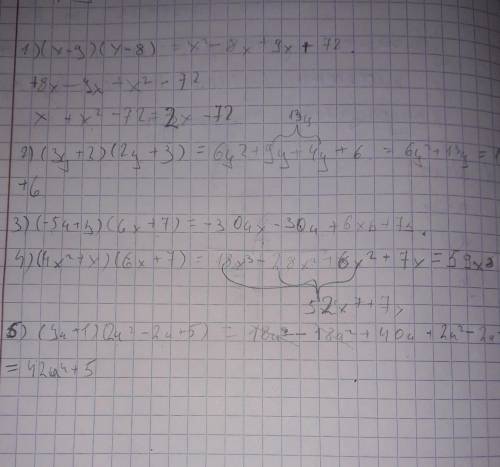 1) (x-9)(x-8) = x² - 8x + 9x + 72.
+8x - 9x + x² - 72
x + x² - 72 + 2x - 72
13y
2) (3y+2)(2y+3) = 6y² + 9y + 4y + 6 = 6y² + 13y =
+6
3) (-5a+b)(6x+7) = -30ax - 30a + 6xb + 7b.
4) (4x²+x)(6x+7) = 18x³ - 28x² + 6x² + 7x = 59x
52x⁷ + 7
5) (9a+1)(2a²-2a+5) = 18a³ - 18a² + 40a + 2a² - 2a
= 42a⁴ + 5